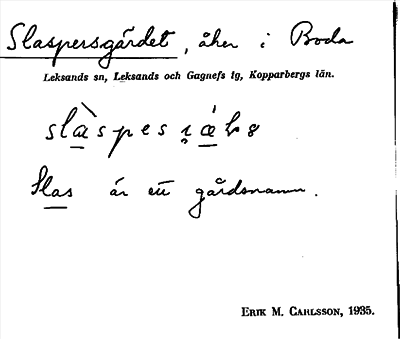 Slaspersgärdet, åker i Boda
Leksands sn, Leksands och Gagnefs tg, Kopparbergs län.
slàspes
Slas är ett gårdsnamn.
ERIK M. CARLSSON, 1935.